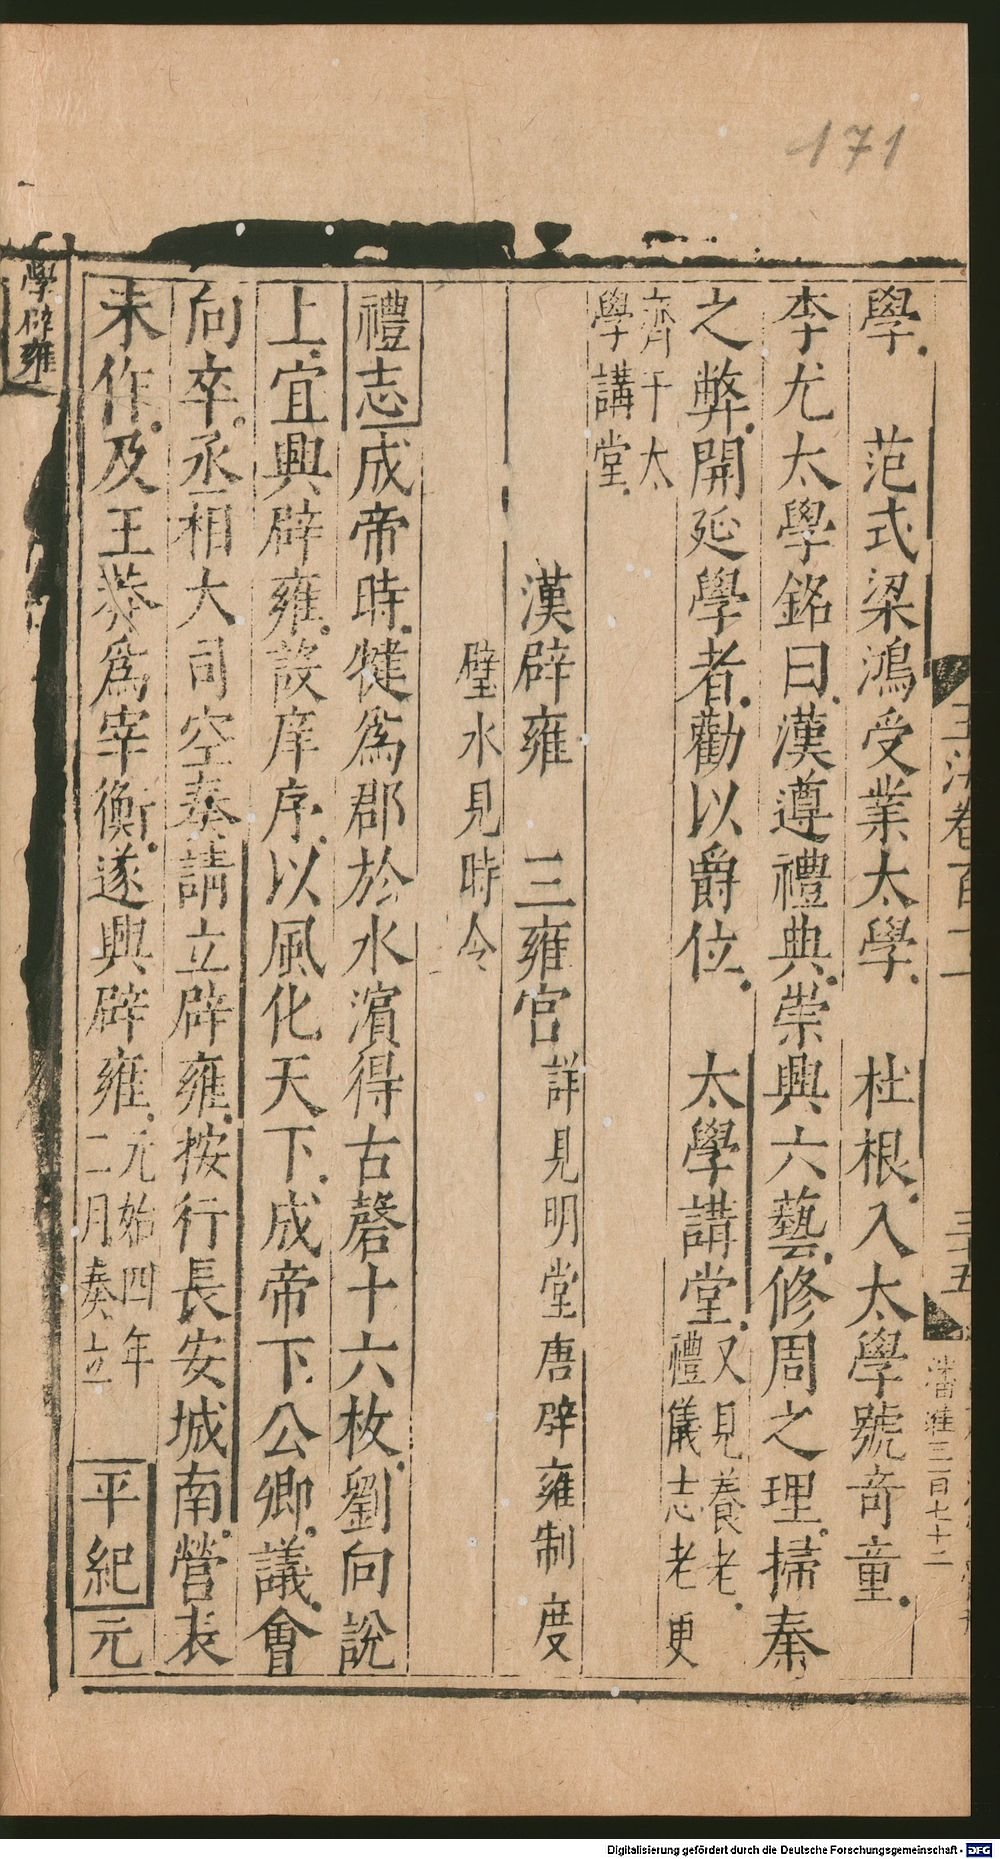 171
學。　范式梁鴻受業太學。　杜根。入太學號奇童。
李尤太學銘曰。漢遵禮典。崇興六藝。修周之理。掃秦
之弊。開延學者。勸以爵位。　太學講堂。又見養老。禮儀志老更
齊于太學講堂。
漢辟雍　三雍宮詳見明堂唐辟雍制度
璧水見時令
禮志成帝時。犍爲郡於水濵得古磬十六枚。劉向說
上。宜興辟雍。設庠序。以風化天下。成帝下公卿。議。會
向卒。丞相大司空奏請立辟雍。按行長安城南。營表
未作。及王莽爲宰衡。遂興辟雍。元始四年二月奏立　平紀元
學辟雍
玉海卷百十二
三十五
Digitalisierung gefördert durch die Deutsche Forschungsgemeinschaft - DFG